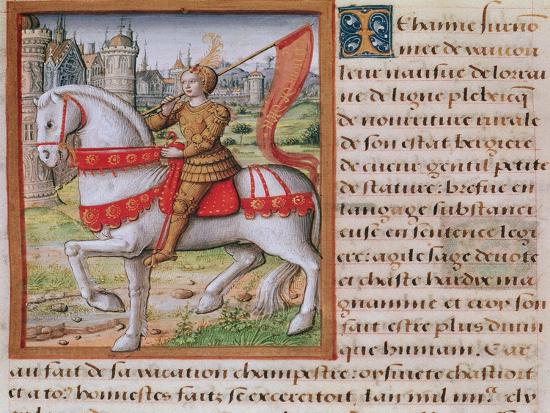 Iehanne surnõ
mee de vaucou
leur natifue de lorrai
ne de ligne plebeicq
de nourriture rurale
de son estat bergiere
de cueur gentil petite
de stature: brefue en
langage substanci
euse en sentence leg
ere: agile sage deuote
et chaste hardix ma
gnanime et croy son
fait estre plus diuin
que humain. Car
au fait de sa vacation champestre: oysiuete chastioit
et a to⁹ honnestes faitz se excercitoit, Lan mil